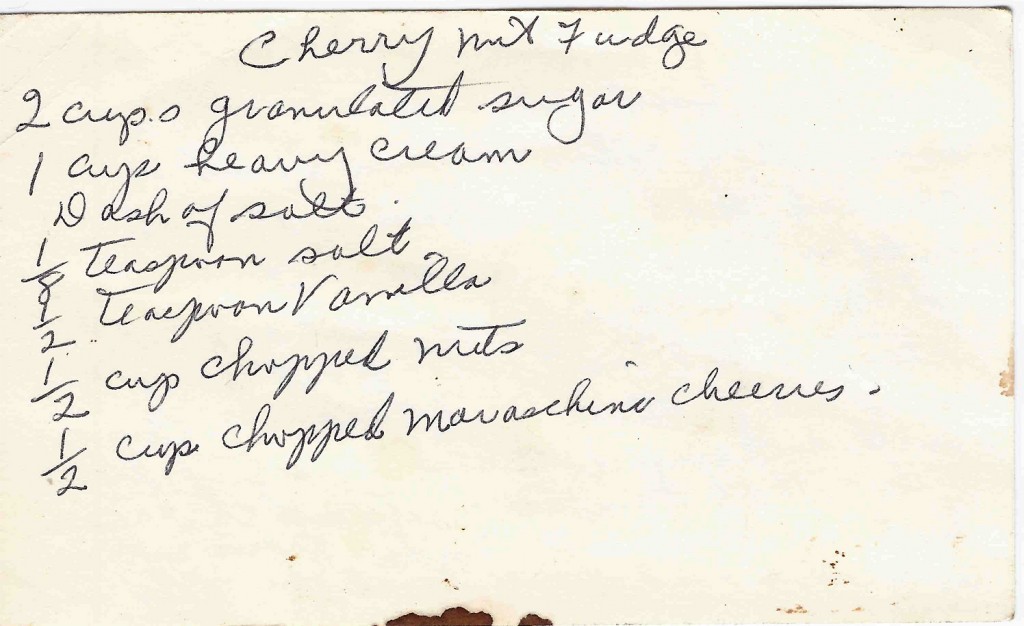 Cherry Nut Fudge
2 cups granulated sugar
1 cup heavy cream
Dash of salt.
1/8 Teaspoon salt
1/2 Teaspoon Vanilla
1/2 cup chopped nuts
1/2 cup chopped maraschino cheeries.